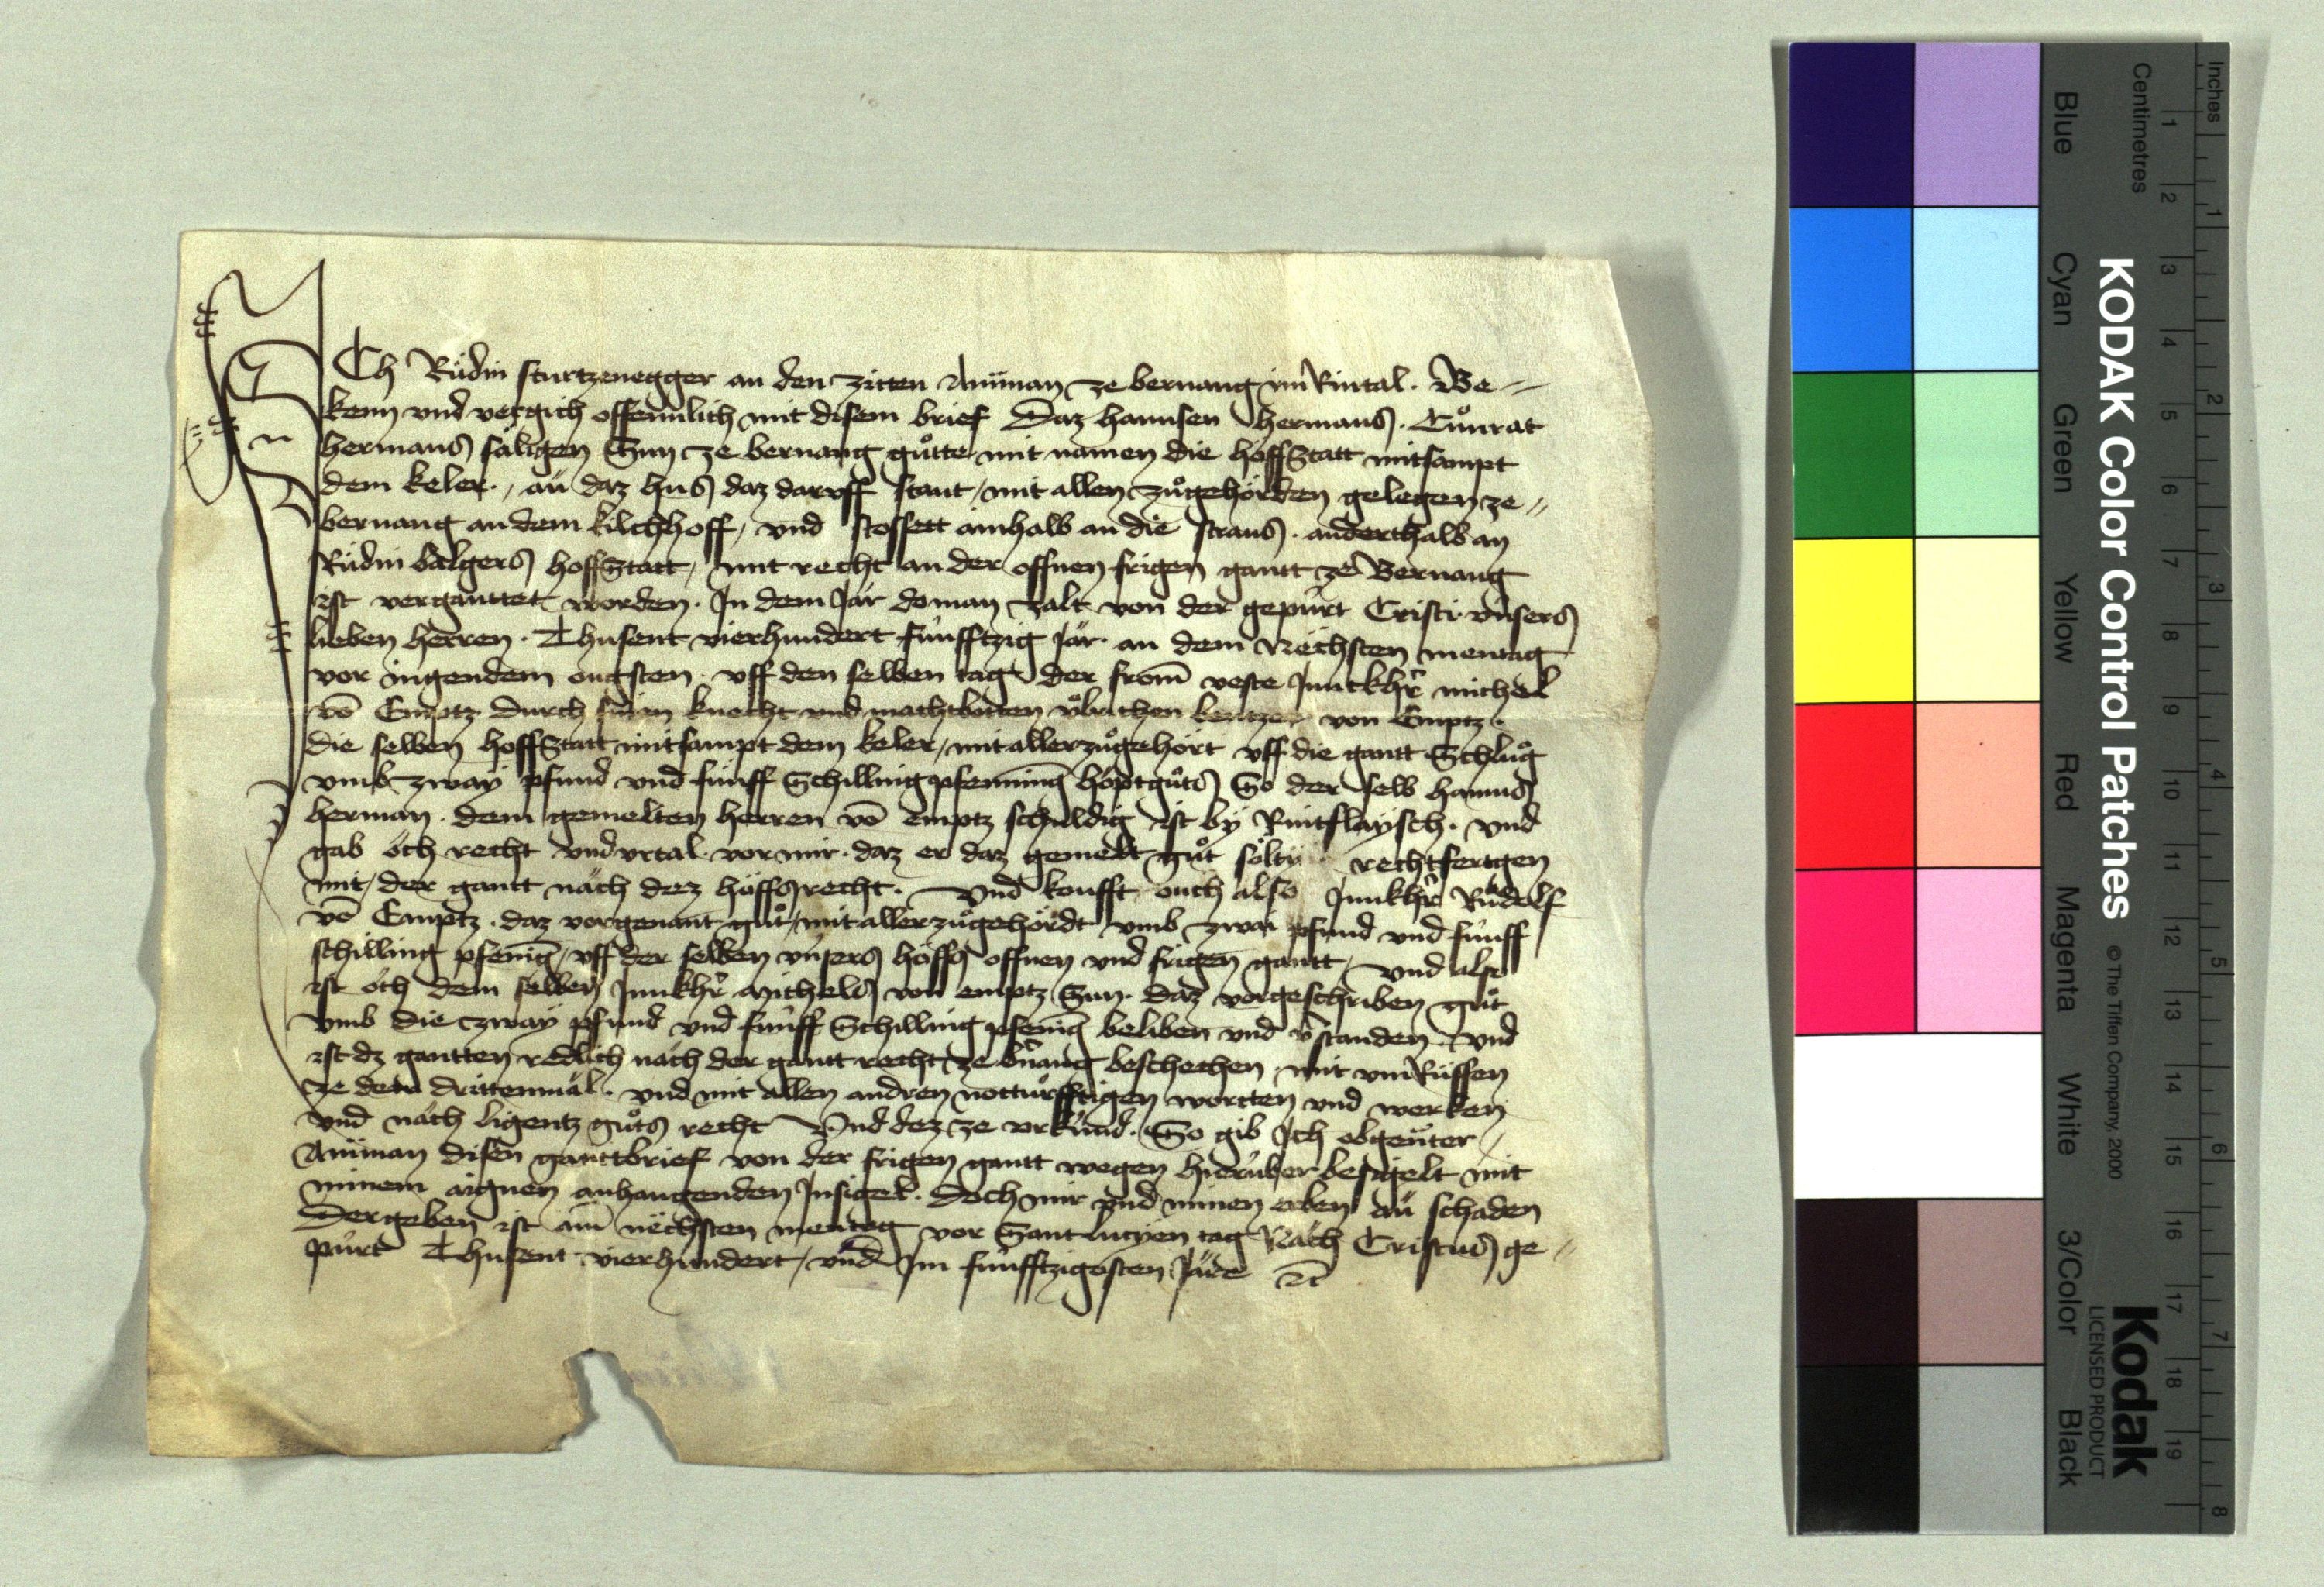 ICh Růdin sturtzenegger an den zitten Amman ze bernang im Rintal. Be=
kenn vnd vergich offennlich mit disem brief Daz hannsen hermans. Cůnrat
hermans säligen Sun ze bernang gůtte mit namen die hoffStatt mitsampt
dem keler., än daz hus daz daruff stant, mit allen zůgehörden gelegen ze=
bernang an dem kilchhoff, vnd stossett ainhalb an die straus. anderthalb an
Růdin balgers hoffStatt, mit recht an der offnen frigen gantt ze Bernang
ist verganttet worden. In dem Jär do man zalt von der gepürt Cristi vnsers
lieben herren. Thusent vierhundert fünfftzig Jär. an dem Nächsten mentag
vor ingendem ougsten. vff den selben tag der from̄ veste Junckhr̄ michel
vō Emptz durch sinen knecht vnd machtbotten vͦlrichen von Emptz.
die selben hoffStatt mitsampt dem keler, mit aller zůgehört vff die gantt Schlůg
vmb zway pfund vnd fünff Schilling pfenning höptgůts So der selb hanns
herman. dem gemelten herren vō emptz schuldig ist by Rintflaÿsch. vnd
gab öch recht vnd vrtal vor mir. daz er daz gemelt gůt sölti rechtfertgen
mit, der gantt näch dez höffs recht. Vnd koufft ouch also Junkhr̄ Růdolf
vō Emptz. daz vorgenant gůt, mit aller zůgehördt vmb zwai pfund vnd fünff
schilling pfenīg, vff der selben vnsers höffs offnen vnd frigen gantt, vnd also
ist öch dem selben Junkhr̄ Michels von emptz Sun. daz vorgeschriben gůt
vmb die zway pfund vnd fünff Schilling pfenīg beliben vnd v̄standen. vnd
ist dz gantten redlich näch der gantt recht ze b̄nang beschechen. mit vm̄Rüffen
ze dem drittenmäl. vnd mit allen andren notturfftigen wortten vnd werken
vnd näch ligentz gůts recht Vnd dez ze vrkünd. So gib Ich obgen̄ter
Amman disen ganttbrief von der frigen gantt wegen hierüber besigelt mit
minem aignen anhangenden Insigel. doch mir vnd minen erben än schaden
Der geben ist am̄ nächsten mentag vor Sant lucyen tag Näch Cristus ge=
pürt Thusent vierhundert, vnd Im fünfftzigosten Järe ꝛc̄
Inches
Centimetres
1 2 3 4 5 6 7 8 9 10 11 12 13 14 15 16 17 18 19
1 2 3 4 5 6 7 8
KODAK Color Control Patches © The Tiffen Company, 2000
Kodak
LICENSED PRODUCT
Blue Cyan Green Yellow Red Magenta White 3/Color Black